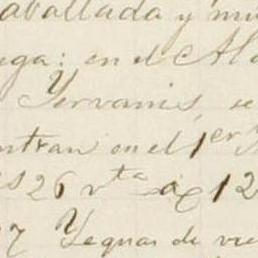 caballada y mu
ega: en el Al
Yervanis, se
ntran en el 1er
s 26 vta a 12
7 Yeguas de vie